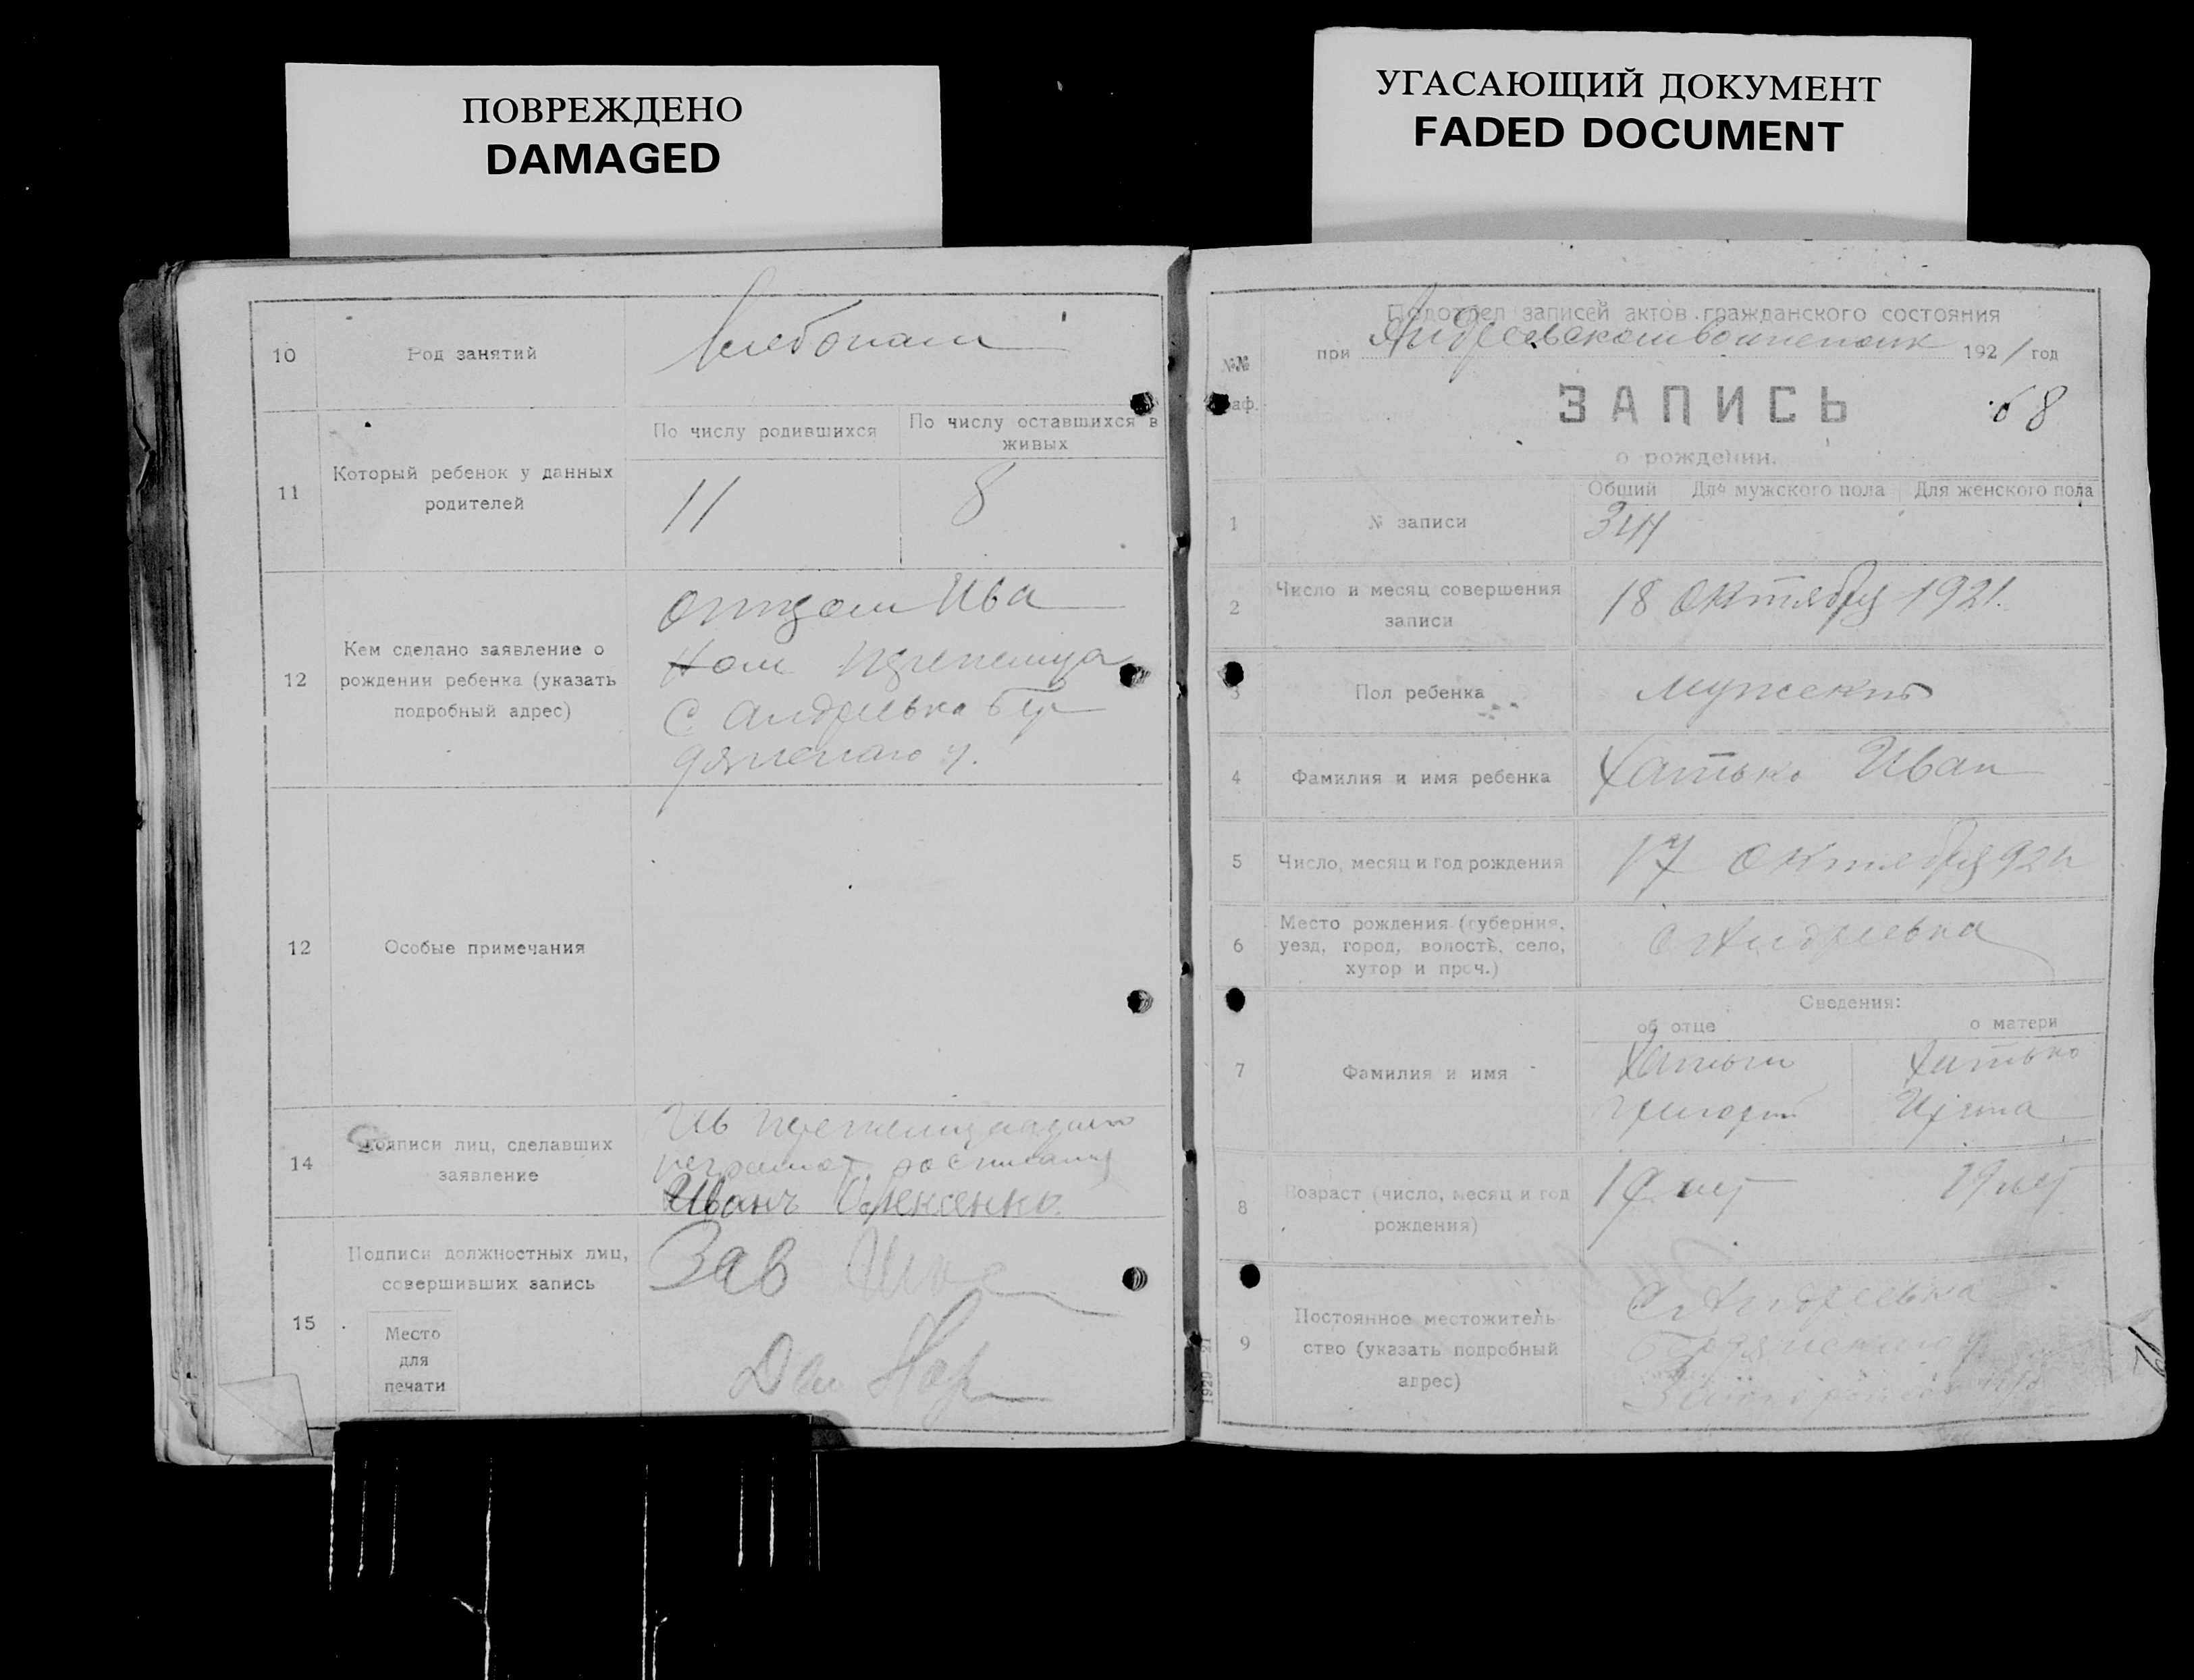 ПОВРЕЖДЕНО
DAMAGED
УГАСАЮЩИЙ ДОКУМЕНТ
FADED DOCUMENT
10
Род занятий
Хлебопаш
11
Который ребенок у данных
родителей
По числу родившихся
11
По числу оставшихся в
живых
8
12
Кем сделано заявление о
рождении ребенка (указать
подробный адрес)
отцом Ива
ном
с Андреевка Бер
дянскаго у.
12
Особые примечания
14
Подписи лиц, сделавших
заявление
Ив
неграмот росписался
Иванъ
15
Подписи должностных лиц,
совершивших запись
Место
для
печати
Зав
№№
граф.
Подотдел записей актов гражданского состояния
при Андреевском 1921 год
ЗАПИСЬ
68
о рождении.
1
№ записи
Общий
Для мужского пола
Для женского пола
344
2
Число и месяц совершения
записи
18 Октября 1921.
3
Пол ребенка
мужской
4
Фамилия и имя ребенка
Хатько Иван
5
Число, месяц и год рождения
17 Октября 921
6
Место рождения (губерния,
уезд, город, волость, село,
хутор и проч.)
с Андреевка
Сведения:
7
Фамилия и имя
об отце
Хатько
Григорий
о матери
Хатько
8
Возраст (число, месяц и год
рождения)
19 лет
19 лет
9
Постоянное местожитель-
ство (указать подробный
адрес)
с Андреевка
Бердянского у
1920—21